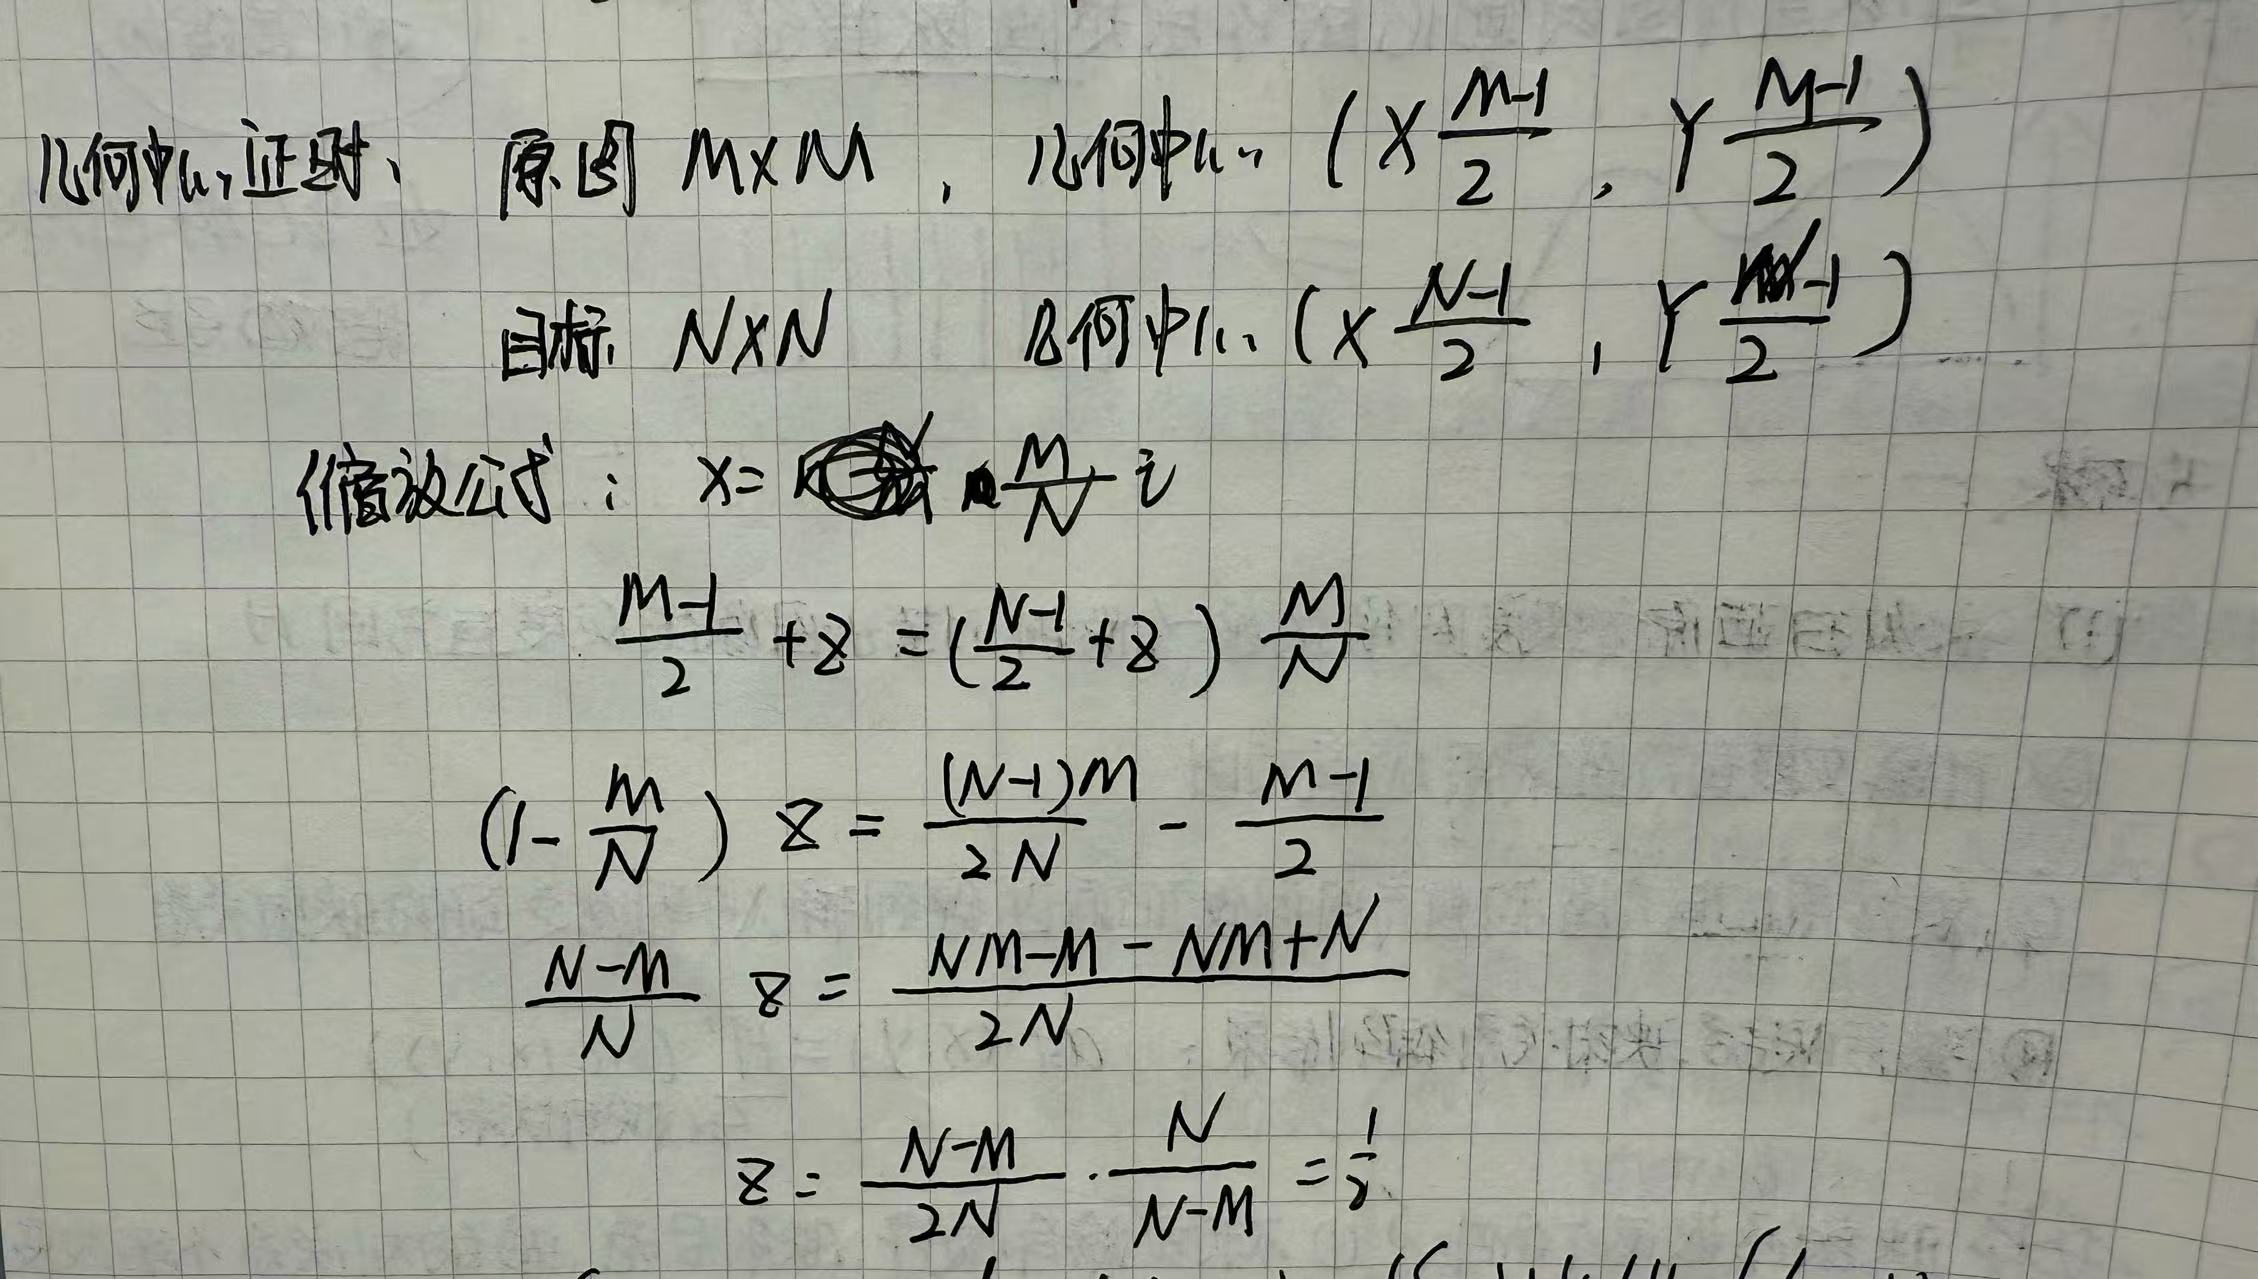 几何中心证明、 原图 M×M , 几何中心 (X (M-1)/2 , Y (M-1)/2)
目标 N×N 几何中心 (X (N-1)/2 , Y (N-1)/2)
缩放公式： x= M/N i
(M-1)/2 + z = ((N-1)/2 + z) M/N
(1 - M/N) z = (N-1)M/2N - (M-1)/2
(N-M)/N z = (NM-M-NM+N)/2N
z = (N-M)/2N · N/(N-M) = 1/2